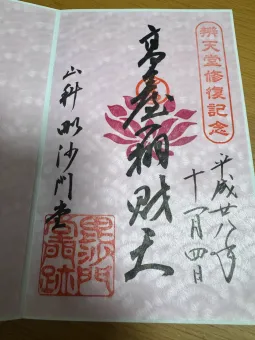 辨天堂修復記念
平成廿八年
十一月四日
高臺辨財天
山科毗沙門堂
毘沙門
堂門跡